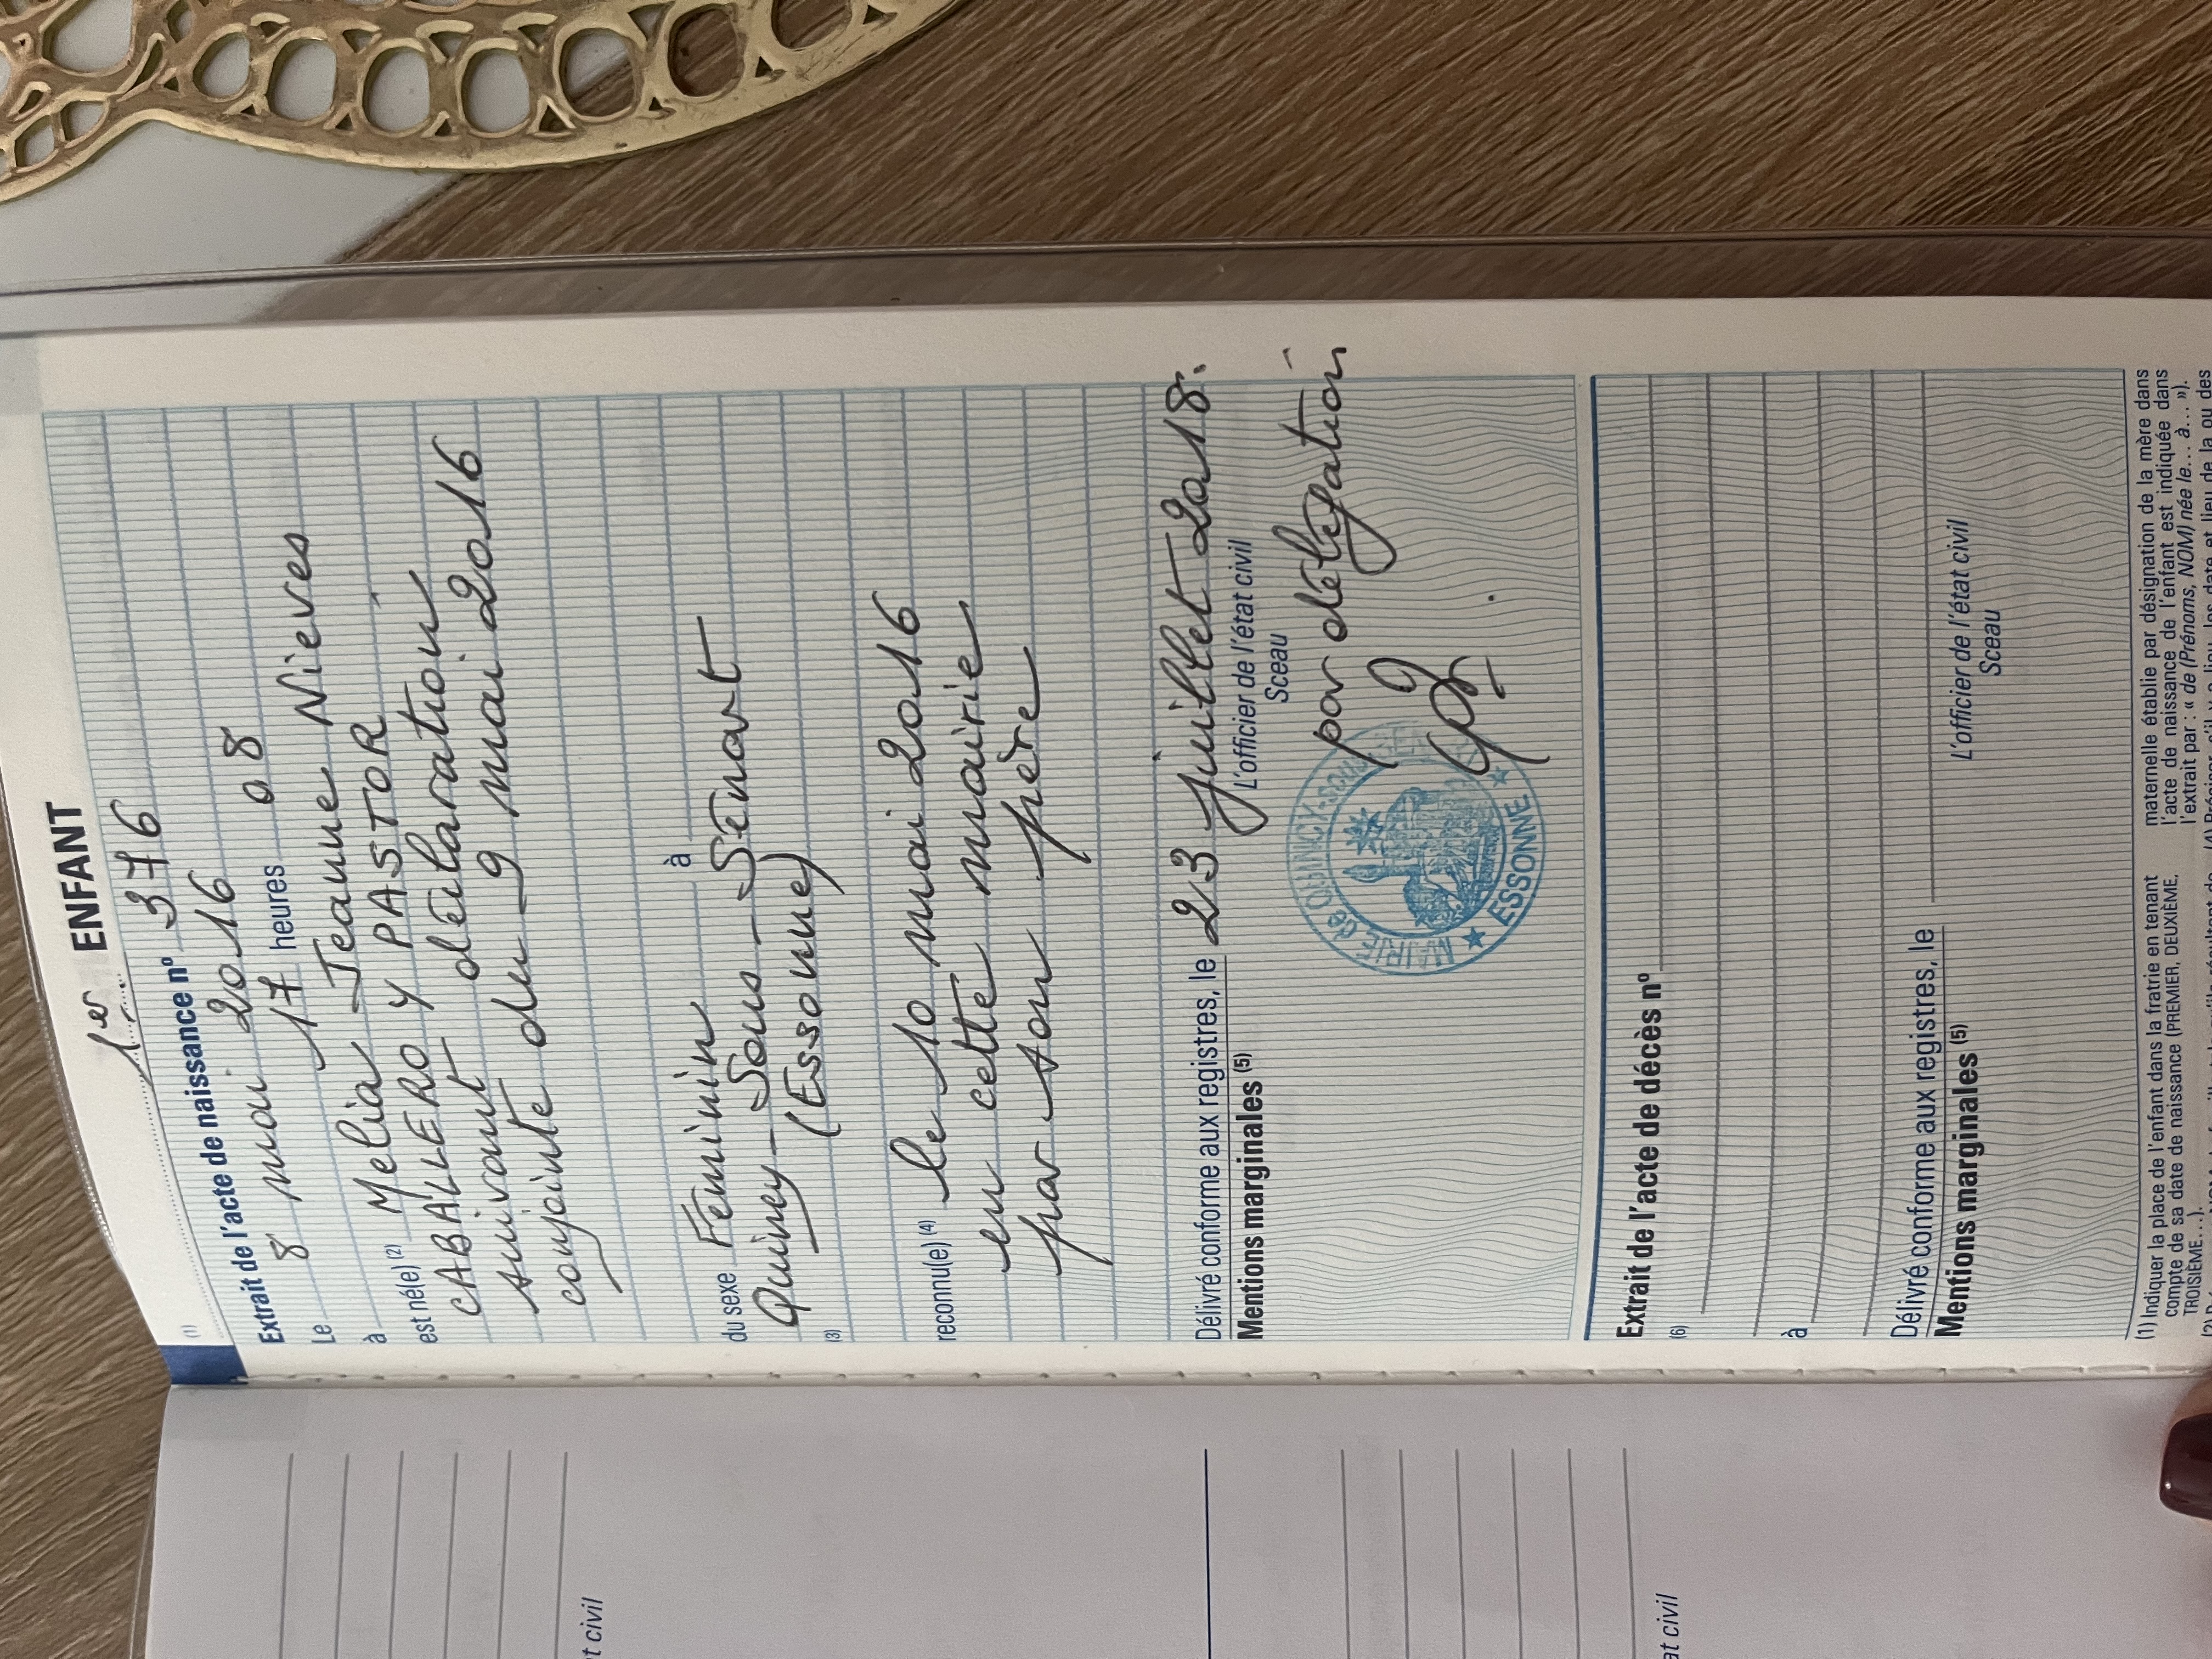 1er ENFANT
(1)
Extrait de l'acte de naissance nº 376
Le 8 mai 2016
à 17 heures 08
est né(e) (2) Melia Jeanne Nieves
CABALLERO y PASTOR
suivant déclaration
conjointe du 9 mai 2016
du sexe Féminin à
Quincy-Sous-Sénart
(3) (Essonne)
reconnu(e) (4) le 10 mai 2016
en cette mairie
par son père
Délivré conforme aux registres, le 23 juillet 2018.
Mentions marginales (5) L'officier de l'état civil
Sceau
par délégation
MAIRIE de QUINCY-sous-
ESSONNE
Extrait de l'acte de décès nº
(6)
à
Délivré conforme aux registres, le
Mentions marginales (5) L'officier de l'état civil
Sceau
(1) Indiquer la place de l'enfant dans la fratrie en tenant
compte de sa date de naissance (PREMIER, DEUXIÈME,
TROISIÈME...).
maternelle établie par désignation de la mère dans
l'acte de naissance de l'enfant est indiquée dans
l'extrait par : « de (Prénoms, NOM) née le... à... »).
at civil
at civil